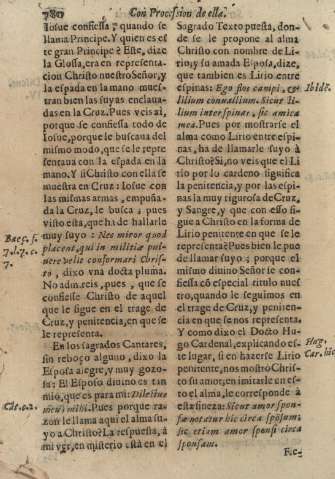 780 Con Procession de ella.
Iosue confiessa? quando se
llama Principe. Y quien es es
te gran Principe? Este, dize
la Glossa, era en representa-
cion Christo nuestro Señor, y
la espada en la mano mues-
tran bien las suyas enclaua-
das en la Cruz. Pues veis aì,
porque se confiessa todo de
Iosue, porque le buscaua del
mismo modo, que se le repre
sentaua con la espada en la
mano. Y si Christo con ella se
muestra en Cruz: Iosue con
las mismas armas, empuña-
da la Cruz, le busca; pues
visto està, que ha de hallarle
muy suyo: Nec miror quod
placent, qui in militia pu-
nere velit conformari Chris-
to, dixo vna docta pluma.
No admireis, pues, que se
confiesse Christo de aquel
que le sigue en el trage de
Cruz, y penitencia, en que se
le representa.
En los sagrados Cantares,
sin reboço alguno, dixo la
Esposa alegre, y muy gozo-
sa: El Esposo diuino es tan
mio, que es para mi: Dilectus
meus mihi. Pues porque ra-
zon le llama aqui el alma su-
yo a Christo? La respuesta, à
mi ver, en misterio està en el
Baeç. s.
7. l. 7. c.
7.
Cãt. c. 2.
Sagrado Texto puesta, don-
de se le propone al alma
Christo con nombre de Li-
rio, y su amada Esposa, dize,
que tambien es Lirio entre
espinas: Ego flos campi, &
lilium conuallium. Sicut li-
lium inter spinas, sic amica
mea. Pues por mostrarse el
alma como Lirio entre espi-
nas, ha de llamarle suyo à
Christo? Si, no veis que el Li
rio por lo cardeno significa
la penitencia, y por las espi-
nas la muy rigurosa de Cruz,
y Sangre, y que con esso si-
gue à Christo en la figura de
Lirio penitente en que se le
representa? Pues bien le pue
de llamar suyo; porque el
mismo diuino Señor se con-
fiessa cõ especial titulo nues
tro, quando le seguimos en
el trage de Cruz, y peniten-
cia en que se nos representa.
Y como dixo el Docto Hu-
go Cardenal, explicando es-
te lugar, si en hazerse Lirio
penitente, nos mostrò Chris-
to su amor, en imitarle en es-
to el alma, le corresponde à
essa fineza: Sicut amor spon-
sæ notatur hic circa spõsum,
sic etiam amor sponsi circa
sponsam.
Ibidē.
Hug.
Car. hic
Fie-